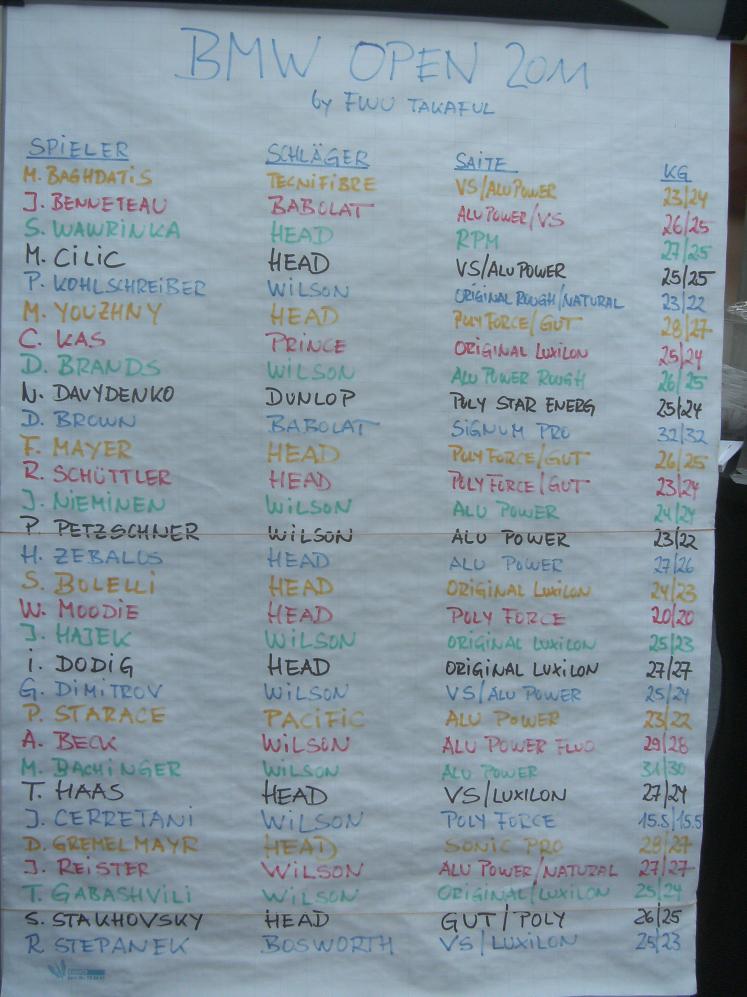 BMW OPEN 2011
by FWU TAKAFUL
SPIELER SCHLÄGER SAITE KG
M. BAGHDATIS TECNIFIBRE VS/ALU POWER 23/24
J. BENNETEAU BABOLAT ALU POWER/VS 26/25
S. WAWRINKA HEAD RPM 27/25
M. CILIC HEAD VS/ALU POWER 25/25
P. KOHLSCHREIBER WILSON ORIGINAL ROUGH/NATURAL 23/22
M. YOUZHNY HEAD POLY FORCE/GUT 28/27
C. KAS PRINCE ORIGINAL LUXILON 25/24
D. BRANDS WILSON ALU POWER ROUGH 26/25
N. DAVYDENKO DUNLOP POLY STAR ENERG 25/24
D. BROWN BABOLAT SIGNUM PRO 32/32
F. MAYER HEAD POLY FORCE/GUT 26/25
R. SCHÜTTLER HEAD POLY FORCE/GUT 23/24
J. NIEMINEN WILSON ALU POWER 24/24
P. PETZSCHNER WILSON ALU POWER 23/22
H. ZEBALLOS HEAD ALU POWER 27/26
S. BOLELLI HEAD ORIGINAL LUXILON 24/23
W. MOODIE HEAD POLY FORCE 20/20
J. HAJEK WILSON ORIGINAL LUXILON 25/23
I. DODIG HEAD ORIGINAL LUXILON 27/27
G. DIMITROV WILSON VS/ALU POWER 25/24
P. STARACE PACIFIC ALU POWER 23/22
A. BECK WILSON ALU POWER FLUO 29/28
M. BACHINGER WILSON ALU POWER 31/30
T. HAAS HEAD VS/LUXILON 27/24
J. CERRETANI WILSON POLY FORCE 15.5/15.5
D. GREMELMAYR HEAD SONIC PRO 28/27
J. REISTER WILSON ALU POWER/NATURAL 27/27
T. GABASHVILI WILSON ORIGINAL/LUXILON 25/24
S. STAKHOVSKY HEAD GUT/POLY 26/25
R STEPANEK BOSWORTH VS/LUXILON 25/23